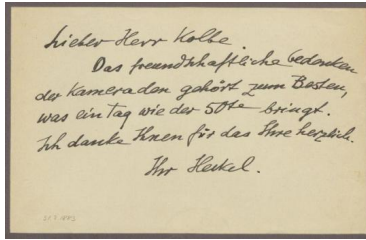 Lieber Herr Kolbe.
Das freundschaftliche Gedenken
der Kameraden gehört zum Besten,
was ein Tag wie der 50te bringt.
Ich danke Ihnen für das Ihre herzlich.
Ihr Heckel.